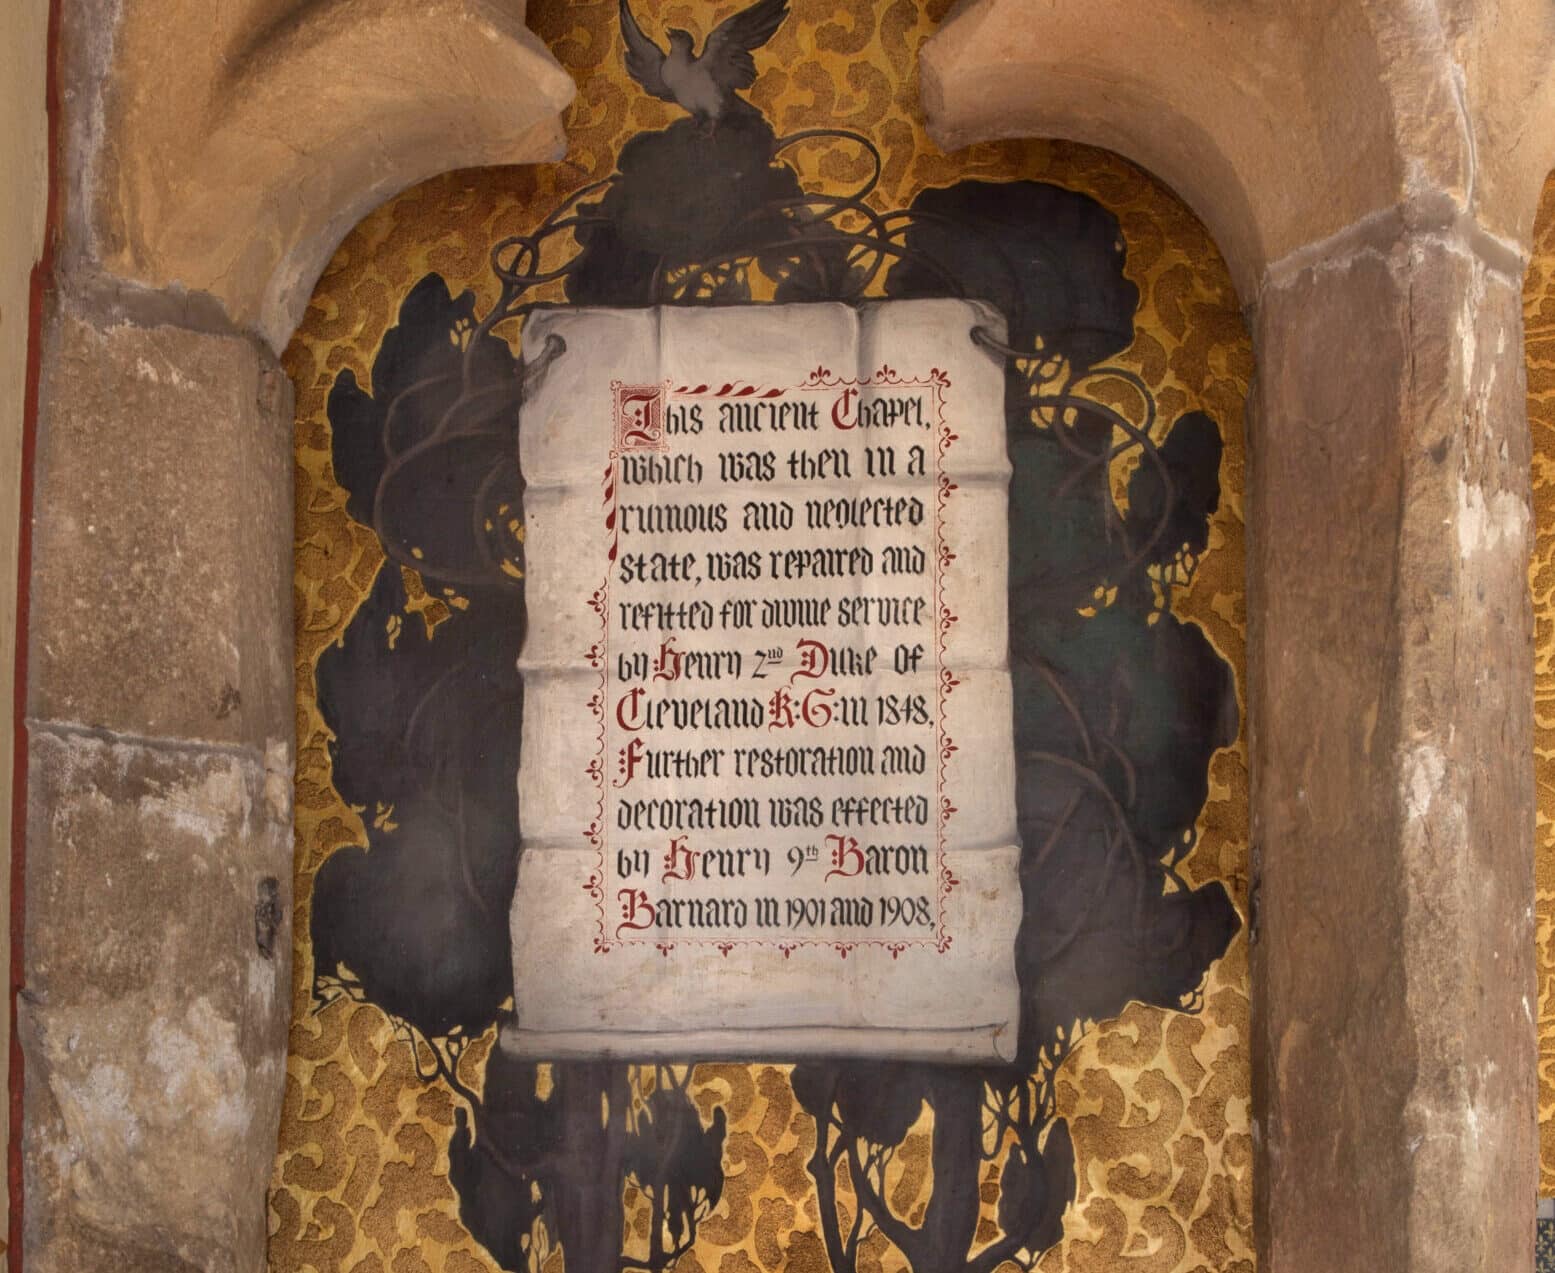 This ancient Chapel,
which was then in a
ruinous and neglected
state, was repaired and
refitted for divine service
by Henry 2nd Duke of
Cleveland K:G:in 1848,
Further restoration and
decoration was effected
by Henry 9th Baron
Barnard in 1901 and 1908,